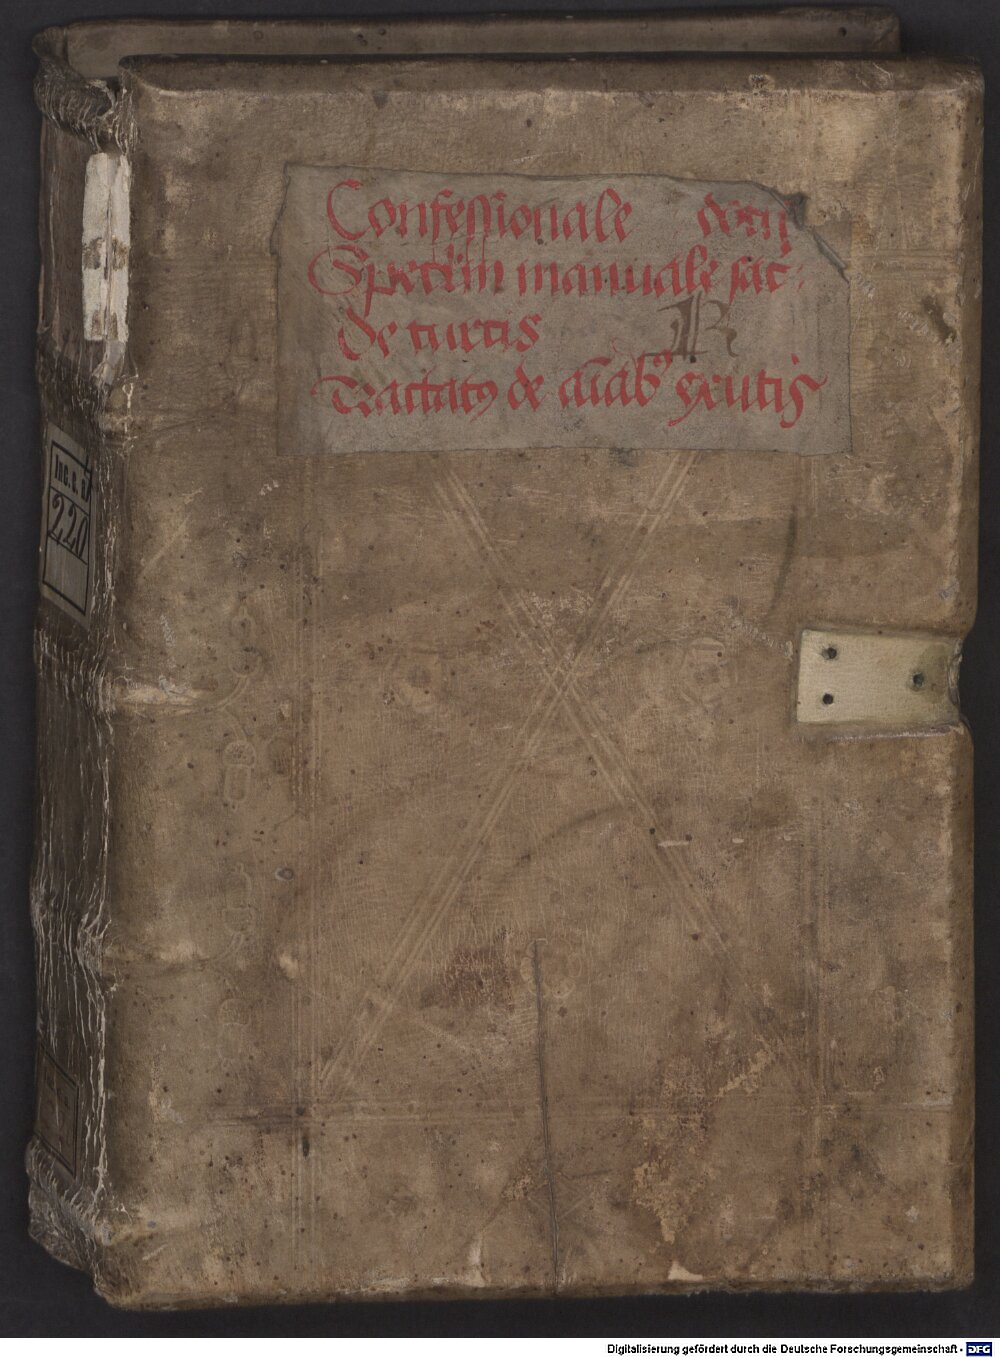 Confessionale
Spec̄lm manuale sac:
De turcis R
Tractatꝯ de
Inc. c. a.
220
Digitalisierung gefördert durch die Deutsche Forschungsgemeinschaft - DFG